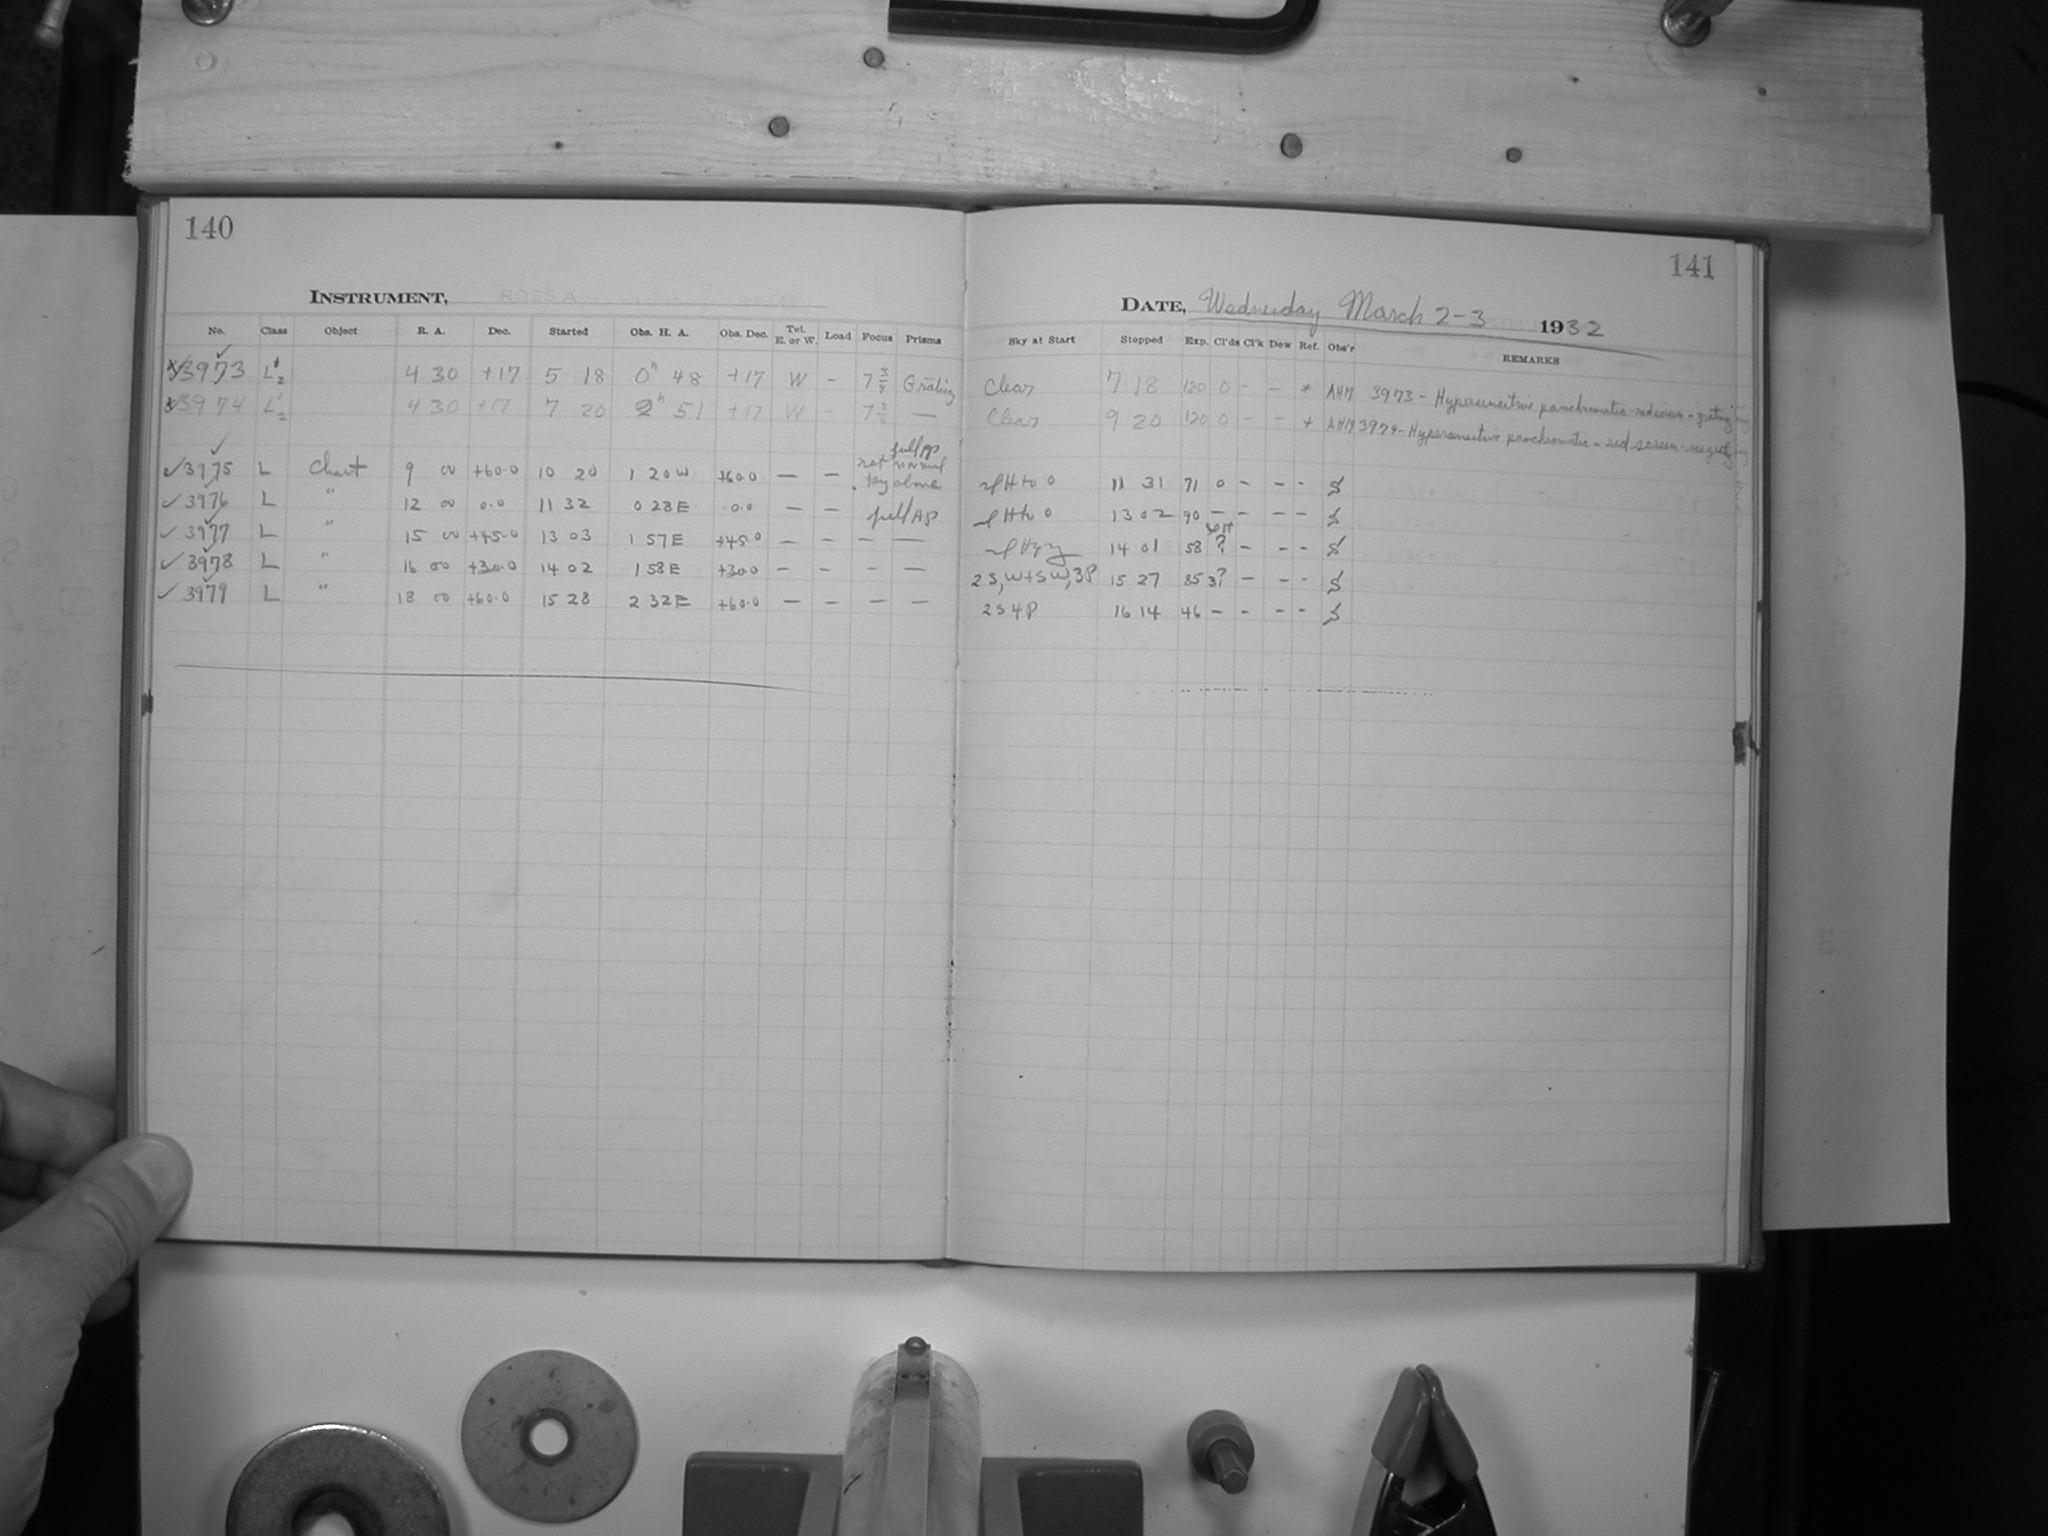 140
141
INSTRUMENT, ROSS A
DATE, Wednesday March 2-3 1932
No. Class Object R. A. Dec. Started Obs. H. A. Obs. Dec. Tel. E. or W. Load Focus Prisms Sky at Start Stopped Exp. Cl'ds Cl'k Dew Ref. Obs'r REMARKS
3973 L 1/2 4 30 +17 5 18 0h 48 +17 W - 7 3/4 Grating Clear 7 18 120 0 - - * AHM 3973 - Hypersensitive panchromatic - red screen - grating
3974 L 1/2 4 30 +17 7 20 2h 51 +17 W - 7 3/4 — Clear 9 20 120 0 - - * AHM 3974 - Hypersensitive panchromatic - red screen - no grating
full Ap
3975 L Chart 9 00 +60.0 10 20 1 20 W +60.0 — — H to 0 11 31 71 0 - - -
3976 L " 12 00 0.0 11 32 0 28 E 0.0 — — full Ap H to 0 13 02 90 - - - -
3977 L " 15 00 +45.0 13 03 1 57 E +45.0 — — — — 14 01 58 ? - - -
3978 L " 16 00 +30.0 14 02 1 58 E +30.0 — — — — 2 S, W + SW, 3P 15 27 85 3? - - -
3979 L " 18 00 +60.0 15 28 2 32 E +60.0 — — — — 2 S 4 P 16 14 46 - - - -